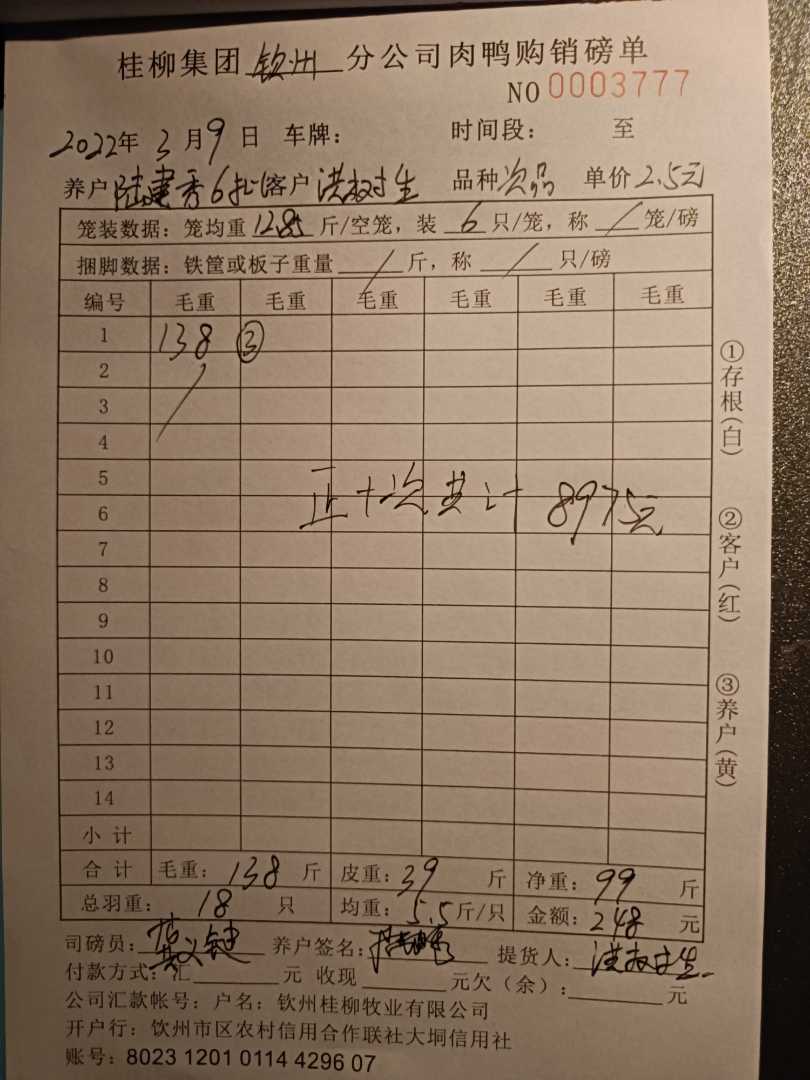 桂柳集团 钦州 分公司肉鸭购销磅单
NO 0003777
2022年 3月 9日 车牌: 时间段: 至
养户 陆建秀6批 客户 洪树生 品种 次品 单价 2.5元
笼装数据: 笼均重 12.85 斤/空笼, 装 6 只/笼, 称 / 笼/磅
捆脚数据: 铁筐或板子重量 / 斤, 称 / 只/磅
编号 毛重 毛重 毛重 毛重 毛重 毛重
1 138 ③
2
3
4
5
正+次共计 8975元
6
7
8
9
10
11
12
13
14
小计
合计 毛重: 138 斤 皮重: 39 斤 净重: 99 斤
总羽重: 18 只 均重: 5.5 斤/只 金额: 248 元
司磅员: 养户签名: 提货人: 洪树生
付款方式: 汇 元 收现 元欠(余): 元
公司汇款帐号: 户名: 钦州桂柳牧业有限公司
开户行: 钦州市区农村信用合作联社大垌信用社
账号: 8023 1201 0114 4296 07
①存根(白)
②客户(红)
③养户(黄)